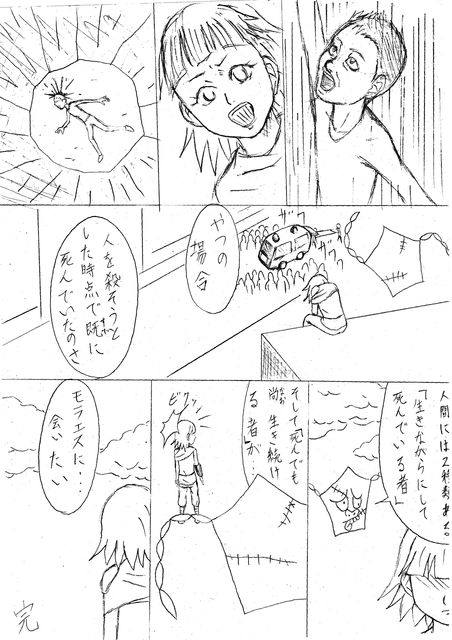 ザワ
ザワ
やつの
場合
人を殺そうと
した時点で既に
死んでいたのさ
人間には2種類ある。
「生きながらにして
死んでいる者」
そして「死んでも
尚 生き続け
る者が‥
ビクッ
モラエスに‥
会いたい
完